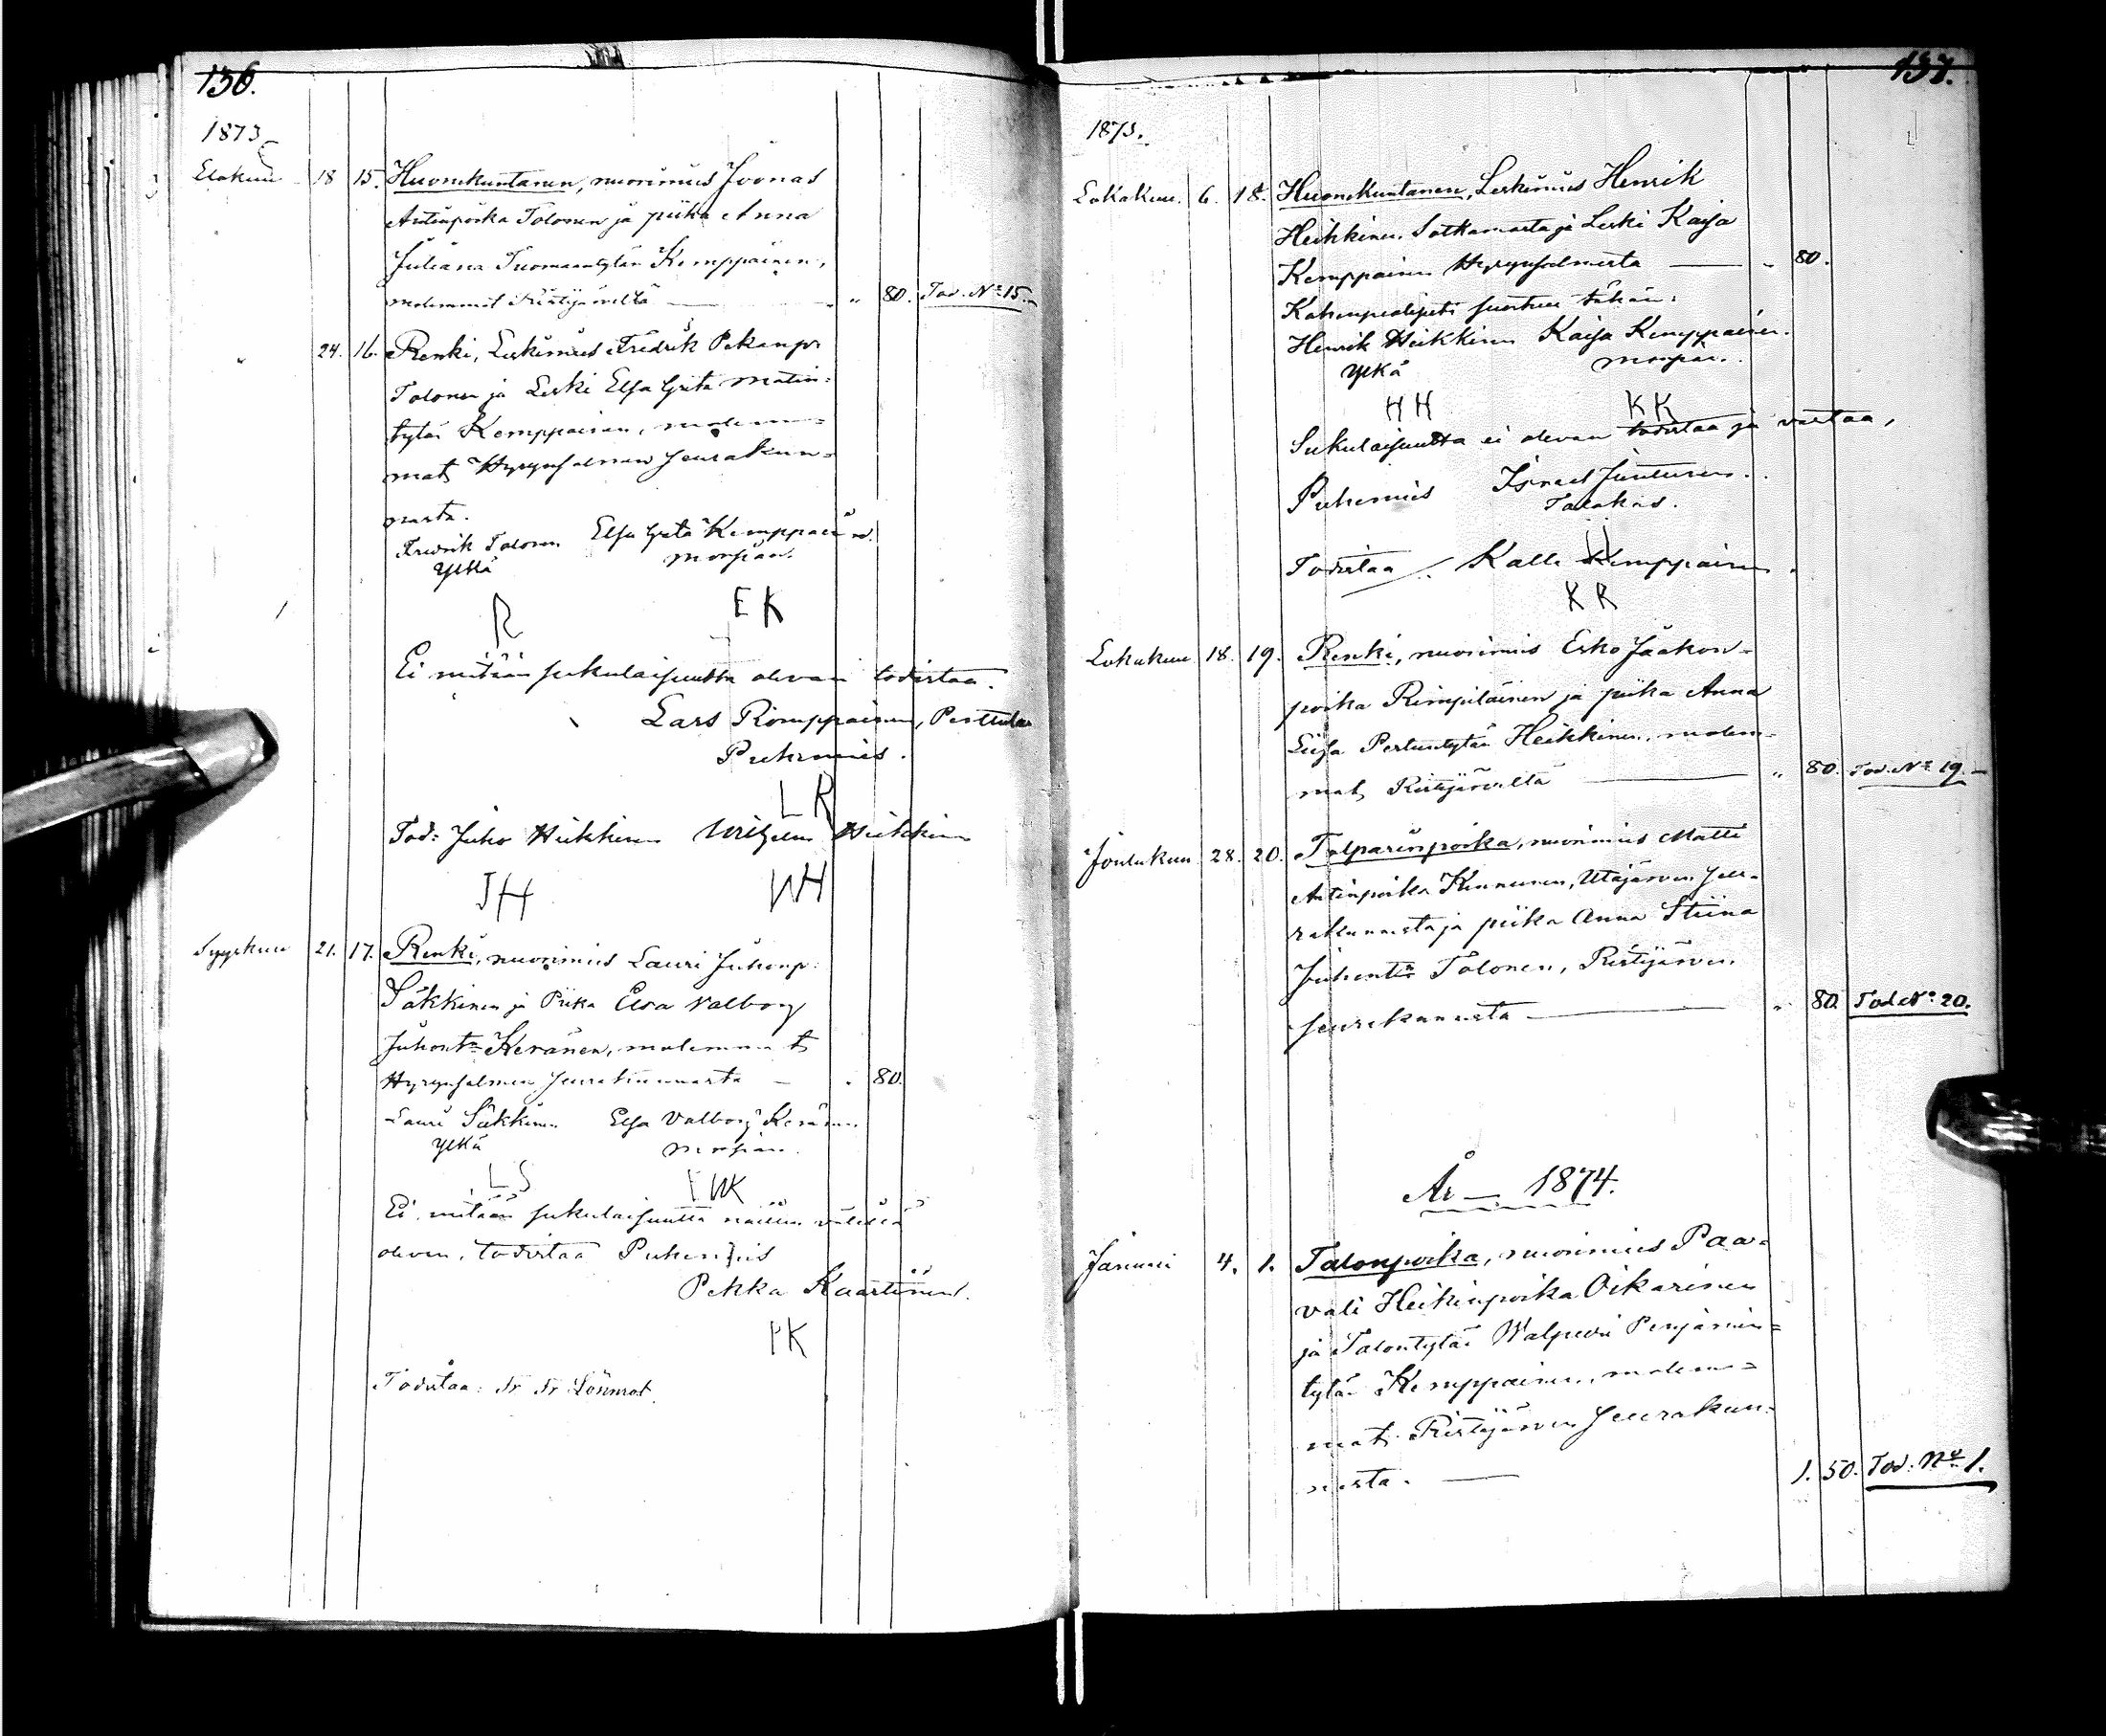 136.
1873
Elokuu 18 15. Huonekuntanen, nuorimies Joonas
Antinpoika Tolonen ja piika Anna
Juliana Tuomaantytär Kemppainen,
molemmat Ristijäveltä — „ 80. Tod. No 15.
„ 24. 16. Renki, Leskimies Fredrik Pekanp.
Tolonen ja Leski Elsa Greta Matin-
tytär Kemppainen, molem-
mat Hyrynsalmen seurakun-
nasta.
Fredrik Tolonen Elsa Greta Kemppainen.
Ylkä morsian.
R E K
Ei mitään sukulaisuutta olevan todistaa.
Lars Romppainen, Perttula
Puhemies.
L R
Tod: Juho Heikkinen Wilhelm Heikkinen
JH WH
Syyskuu 21. 17. Renki, nuorimies Lauri Juhonp.
Säkkinen ja Piika Elsa Valborg
Juhontr Keränen, molemmat
Hyrynsalmen seurakunnasta — „ 80.
Lauri Säkkinen Elsa Valborg Keränen
Ylkä morsian.
L S E W K
Ei mitään sukulaisuutta näitten välillä
olevan, todistaa Puhemies
Pekka Kaartinen.
P K
Todistaa: Fr Fr Lönnrot.
137.
1873.
Lokakuu. 6. 18. Huonekuntanen, Leskimies Henrik
Heikkinen Sotkamosta ja Leski Kaisa
Kemppainen Hyrynsalmesta — „ 80.
suostuu tähän:
Henrik Heikkinen Kaisa Kemppainen.
Ylkä morsian.
H H K K
Sukulaisuutta ei olevan todistaa ja vastaa,
Puhemies Israel Juntunen.
JJ
Todistaa: Kalle Kemppainen.
K K
Lokakuu 18. 19. Renki, nuorimies Esko Jaakon-
poika Rimpiläinen ja piika Anna
Liisa Pertuntytär Heikkinen, molem-
mat Ristijäveltä — „ 80. Tod. No 19.
Joulukuu 28. 20. Talparinpoika, nuorimies Matti
Antinpoika Kinnunen, Utajärven seu-
rakunnasta ja piika Anna Stiina
Juhontr Tolonen, Ristijärven
seurakunnasta — „ 80. Tod. No 20.
År — 1874.
Januari 4. 1. Talonpoika, nuorimies Paa-
vali Heikinpoika Oikarinen
ja Talontytär Walpuri Penjamin-
tytär Kemppainen, molem-
mat Ristijärven seurakun-
nasta. — 1. 50. Tod. No 1.